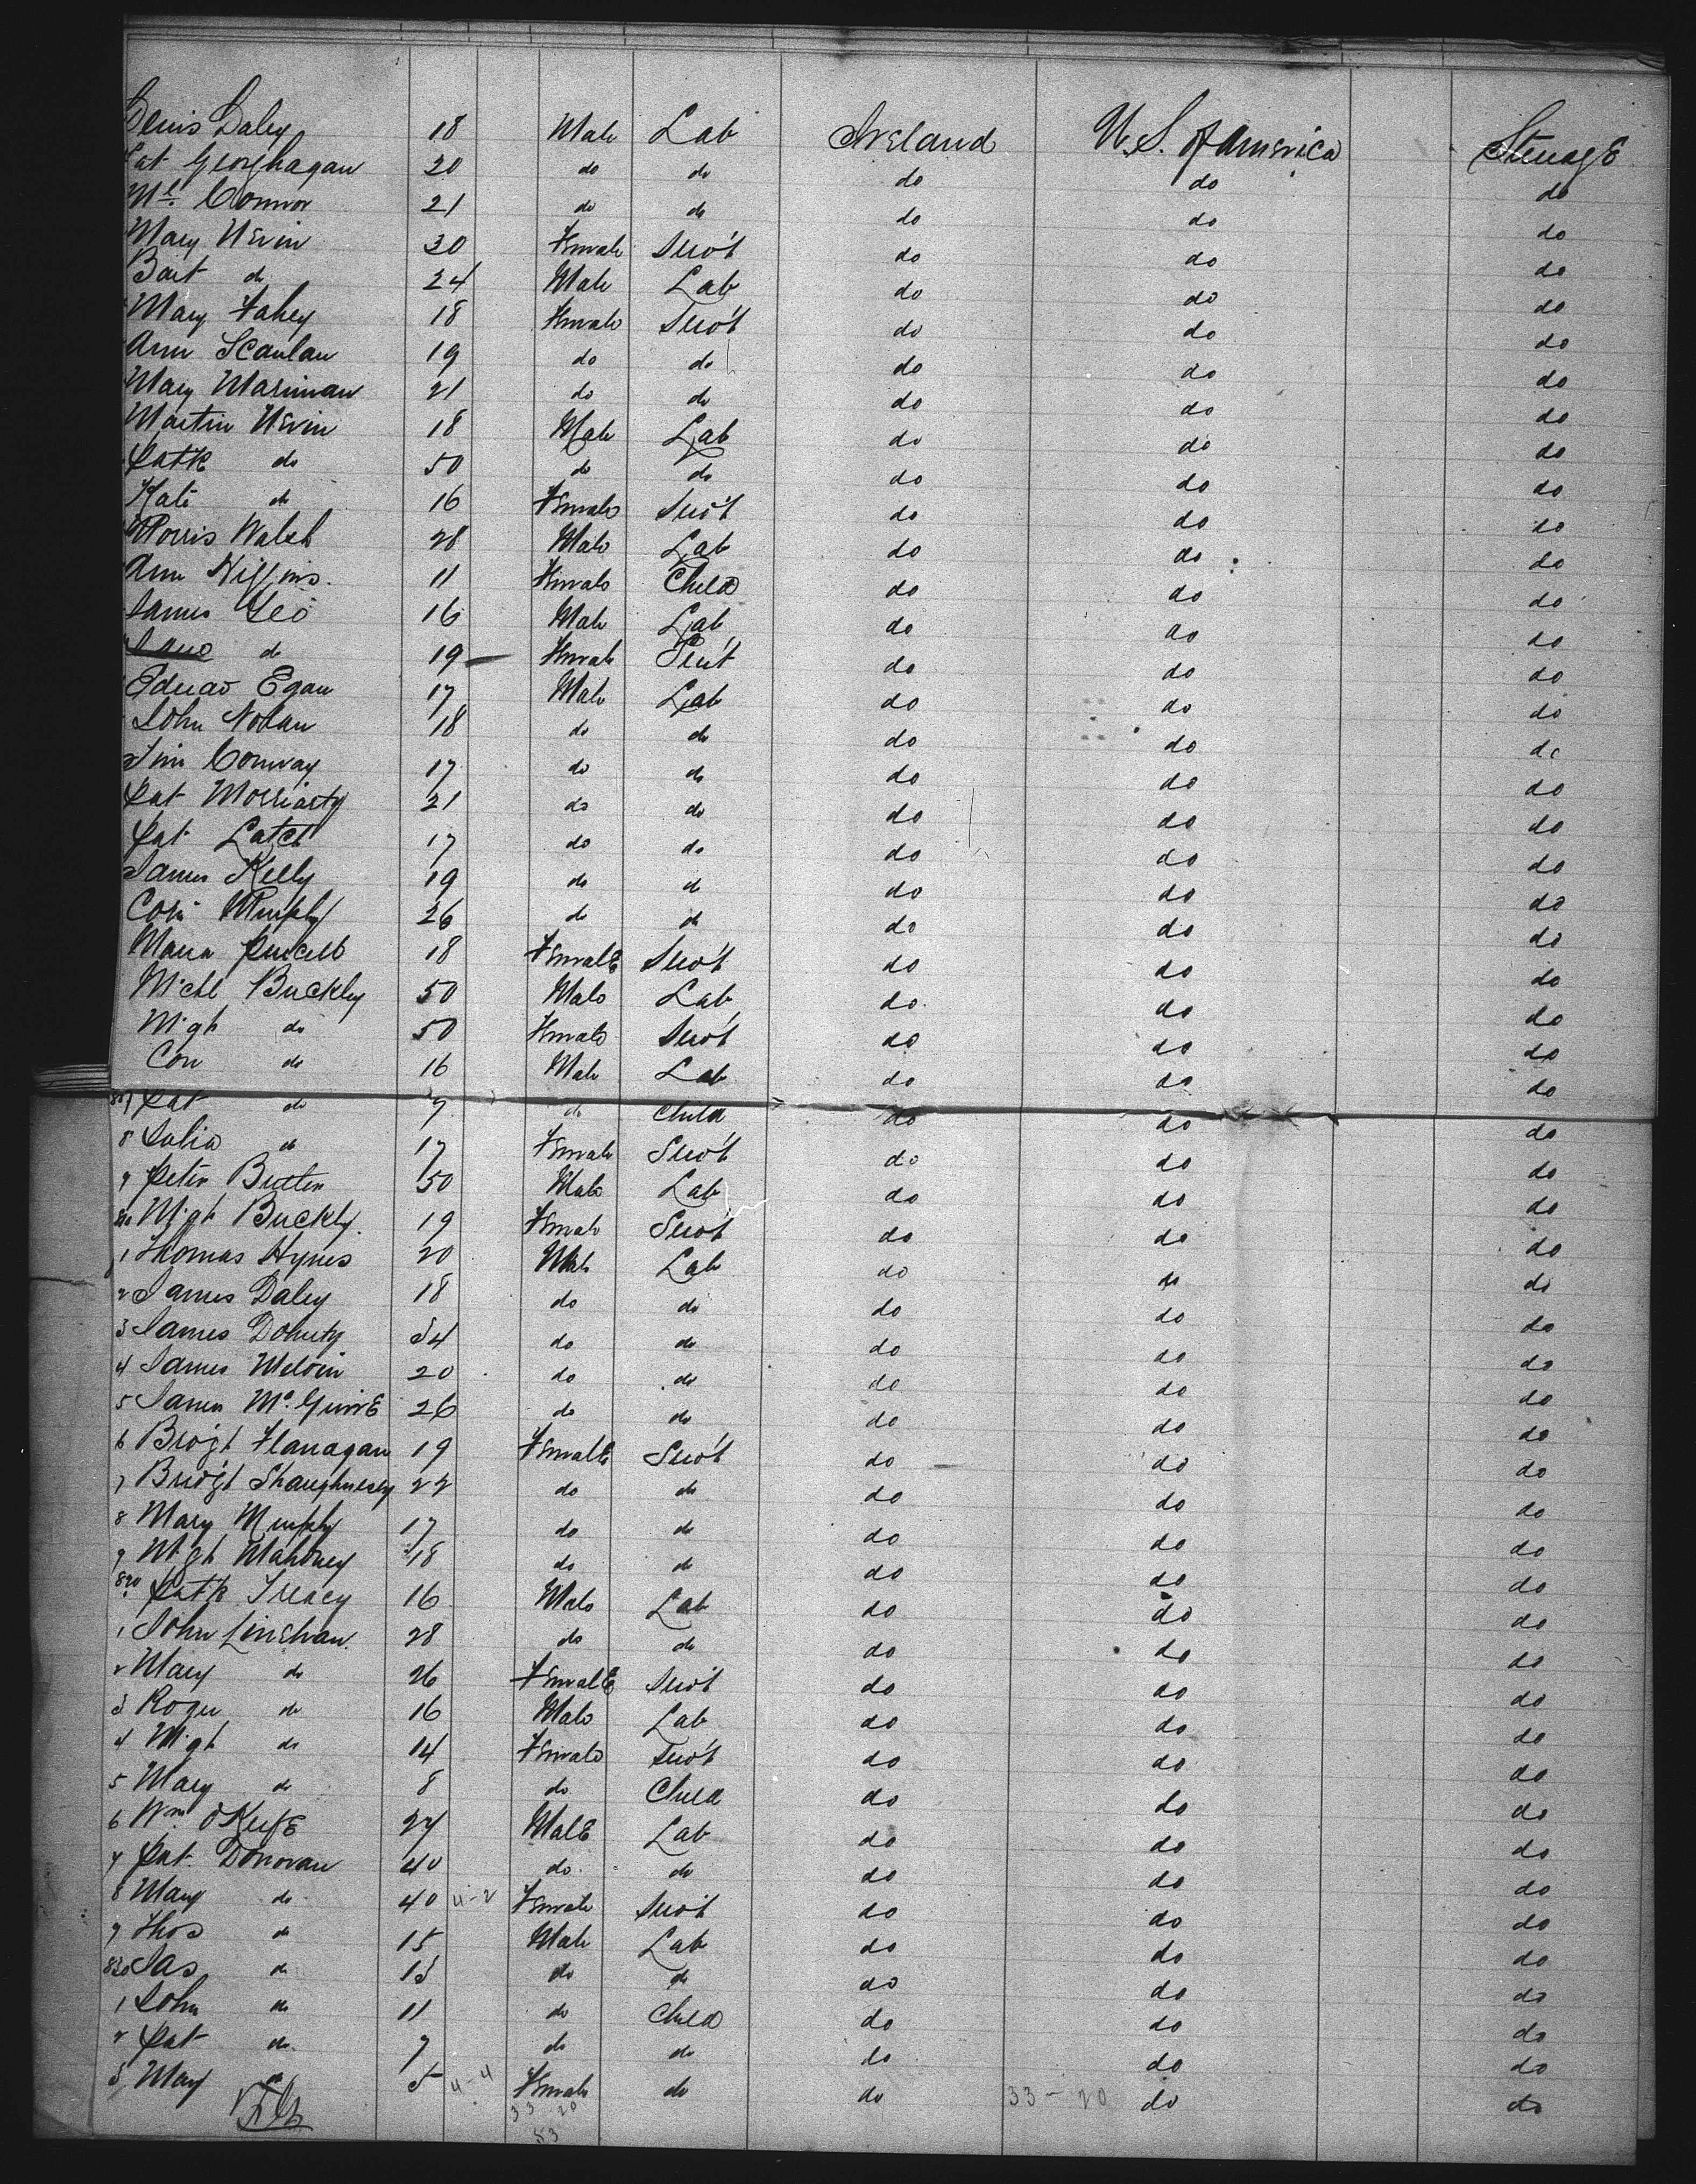 Denis Daley 18 Male Lab Ireland U.S. of America Steerage
Pat Geoghagan 20 do do do do do
Ml. Connor 21 do do do do do
Mary Nevin 30 Female Servt do do do
Bart do 24 Male Lab do do do
Mary Fahey 18 Female Servt do do do
Ann Scanlan 19 do do do do do
Mary Marinnan 21 do do do do do
Martin Nevin 18 Male Lab do do do
Patk do 50 do do do do do
Kate do 16 Female Servt do do do
Morris Walsh 28 Male Lab do do do
Ann Higgins. 11 Female Child do do do
James Leo 16 Male Lab do do do
Jane do 19 Female Servt do do do
Edward Egan 17 Male Lab do do do
John Nolan 18 do do do do do
Tim Conway 17 do do do do do
Pat Morriarty 21 do do do do do
Pat 17 do do do do do
James Kelly 19 do do do do do
Murphy 26 do do do do do
Maria Purcell 18 Female Servt do do do
Michl Buckley 50 Male Lab do do do
Mgt do 50 Female Servt do do do
Con do 16 Male Lab do do do
807 Pat do 7 do Child do do do
8 Julia do 17 Female Servt do do do
9 Peter Butler 50 Male Lab do do do
810 Mgt Buckly. 19 Female Servt do do do
1 Thomas Hynes 20 Male Lab do do do
2 James Daley 18 do do do do do
3 James Doherty 34 do do do do do
4 James Melvin 20 do do do do do
5 James Mc. Guire 26 do do do do do
6 Bridgt Flanagan 19 Female Servt do do do
7 Bridgt Shaughnessy 22 do do do do do
8 Mary Murphy 17 do do do do do
9 Mgt Mahoney 18 do do do do do
820 Patk Treacy 16 Male Lab do do do
1 John Linehan. 28 do do do do do
2 Mary do 26 Female Servt do do do
3 Roger do 16 Male Lab do do do
4 Mgt do 14 Female Servt do do do
5 Mary do 8 do Child do do do
6 Wm. OKeefe 27 Male Lab do do do
7 Pat. Donovan 40 do do do do do
8 Mary do 40 4-2 Female Servt do do do
9 Thos do 15 Male Lab do do do
830 Jas do 13 do do do do do
1 John do 11 do Child do do do
2 Pat do 7 do do do do do
3 Mary do 5 4-4 Female do do 33-20 do do
33 20
53